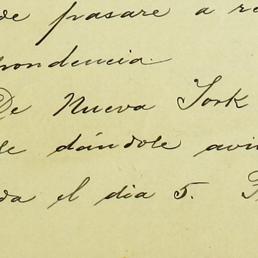 de pasare a re
pondencia.
De Nueva York
le dándole avi
da el dia 5.